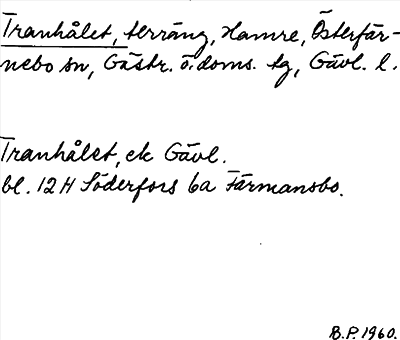 Tranhålet, terräng, Hamre, Österfär-
nebo sn, Gästr. ö. doms. tg, Gävl. l.
Tranhålet, ek Gävl.
bl. 12 H Söderfors 6a Färmansbo.
B.P. 1960.